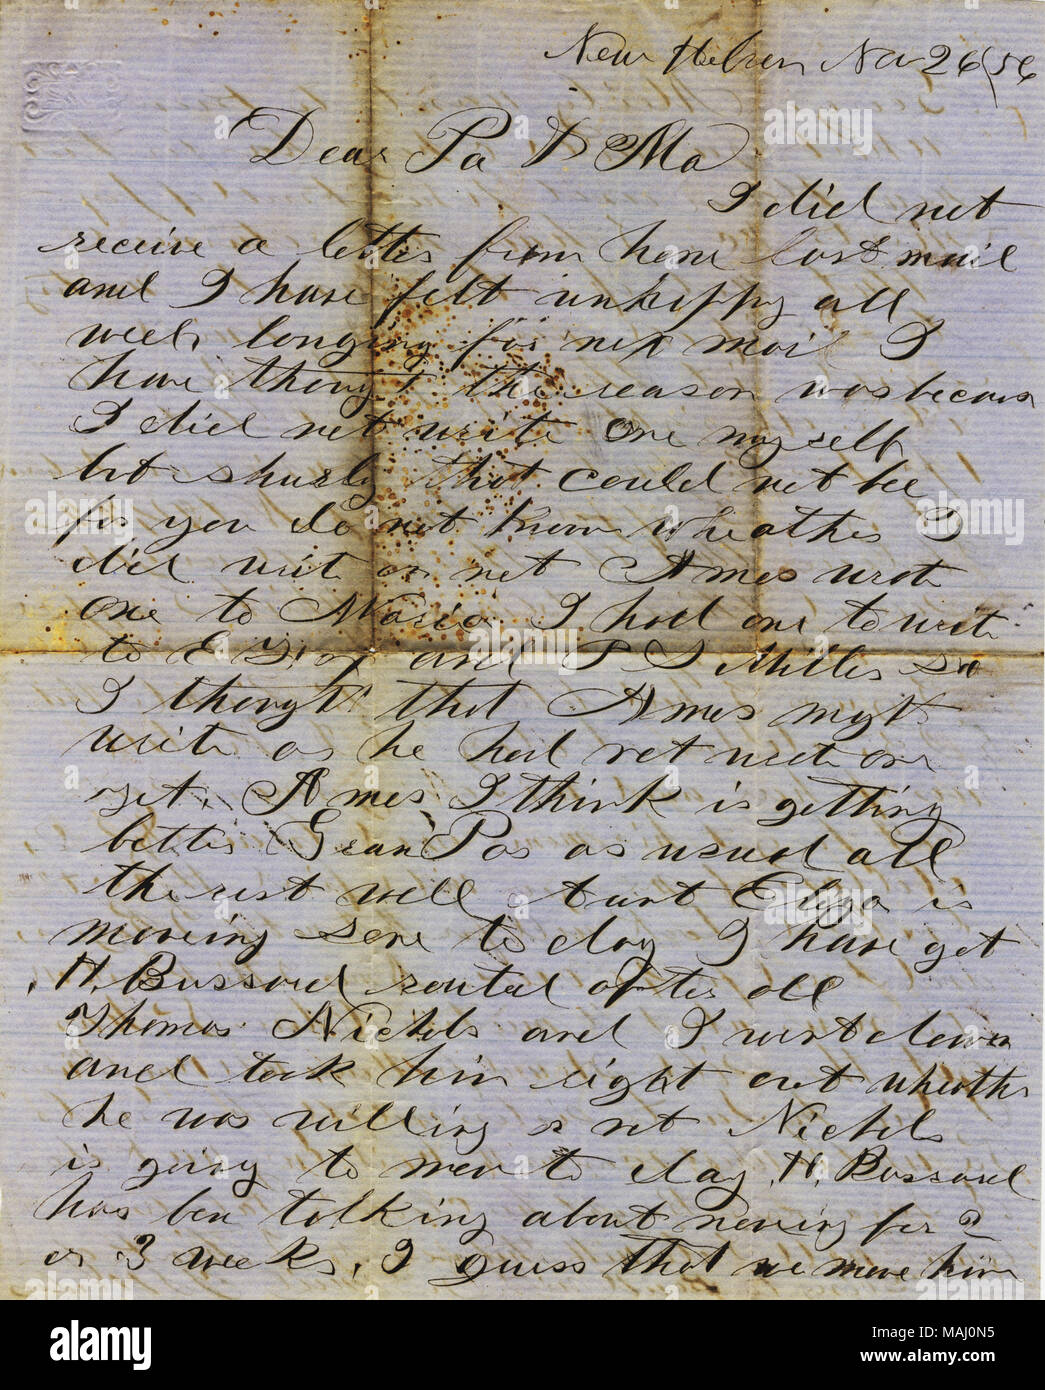 New Hebron Nov 26/56
Dear Pa & Ma
I did not
receive a letter from home last mail
and I have felt unhappy all
week longing for nex mail I
have thought the reason was becaus
I did not write one myself
but shurly that could not bee
for you do not know wheather I
did write or not Ames wrote
one to Maria I had one to write
to E and P S Miller so
I thought that Ames myt
write as he had not wrote one
yet. Ames I think is getting
better GranPas as usual all
the rest well Aunt Eliza is
moveing here to day I have get
H. Bussard routed after all
Thomas Nichols and I went down
and took him right out wheather
he was willing or not Nichols
is going to move to day H. Bussard
has ben talking about moving for 2
or 3 weeks. I guess that we move him
alamy
Image ID: MAJ0N5
www.alamy.com